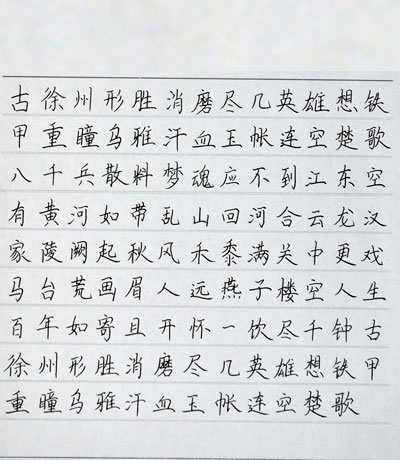 古徐州形胜消磨尽几英雄想铁
甲重瞳乌雅汗血玉帐连空楚歌
八千兵散料梦魂应不到江东空
有黄河如带乱山回河合云龙汉
家陵阙起秋风禾黍满关中更戏
马台荒画眉人远燕子楼空人生
百年如寄且开怀一饮尽千钟古
徐州形胜消磨尽几英雄想铁甲
重瞳乌雅汗血玉帐连空楚歌